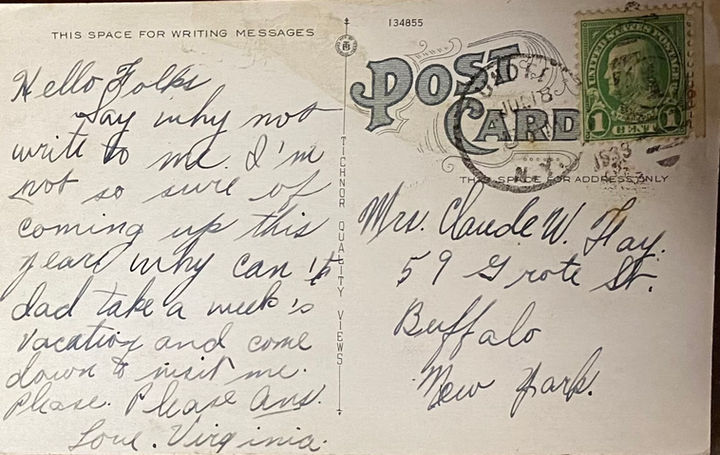 THIS SPACE FOR WRITING MESSAGES
Hello Folks
Say why not
write to me. I'm
not so sure of
coming up this
year why can't
dad take a week's
vacation and come
down to visit me.
Please. Please Ans.
Love. Virginia.
TICHNOR QUALITY VIEWS
134855
POST
CARD
THIS SPACE FOR ADDRESS ONLY
N.Y.
1933
UNITED STATES POSTAGE
1 CENT 1
Mrs. Claude W. Hay.
59 Grote St.
Buffalo
New York.